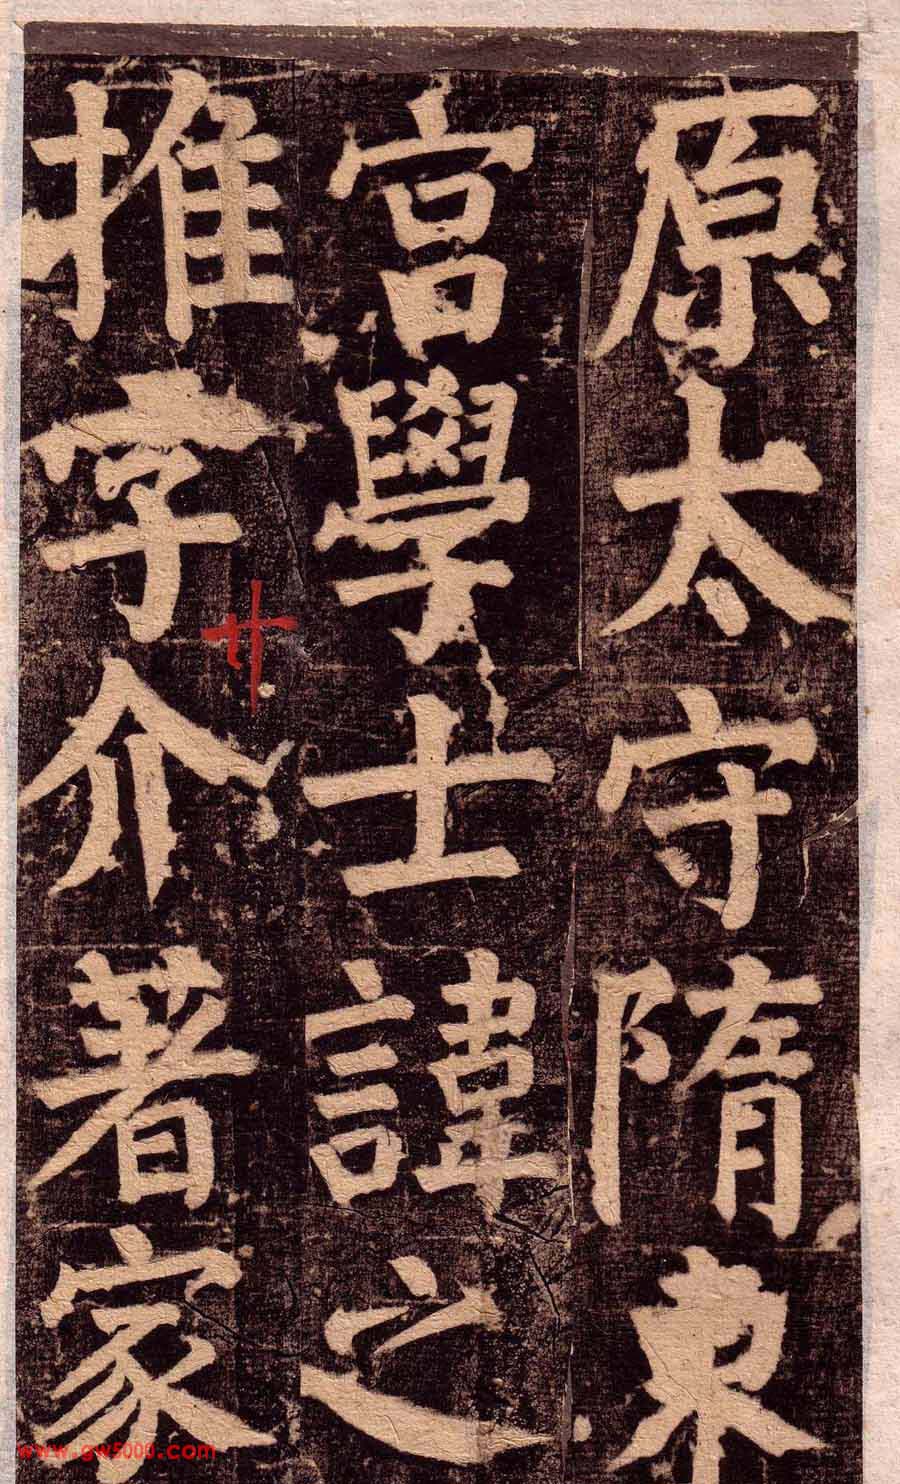 原太守隋東
宮學士諱之
推字介著家
廿
www.gw5000.com